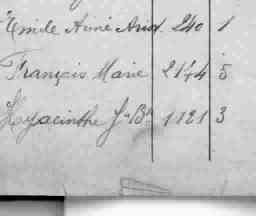 Emile Aimé And. 240 1
François Marie 2144 5
Hyacinthe Jn Bte 1121 3